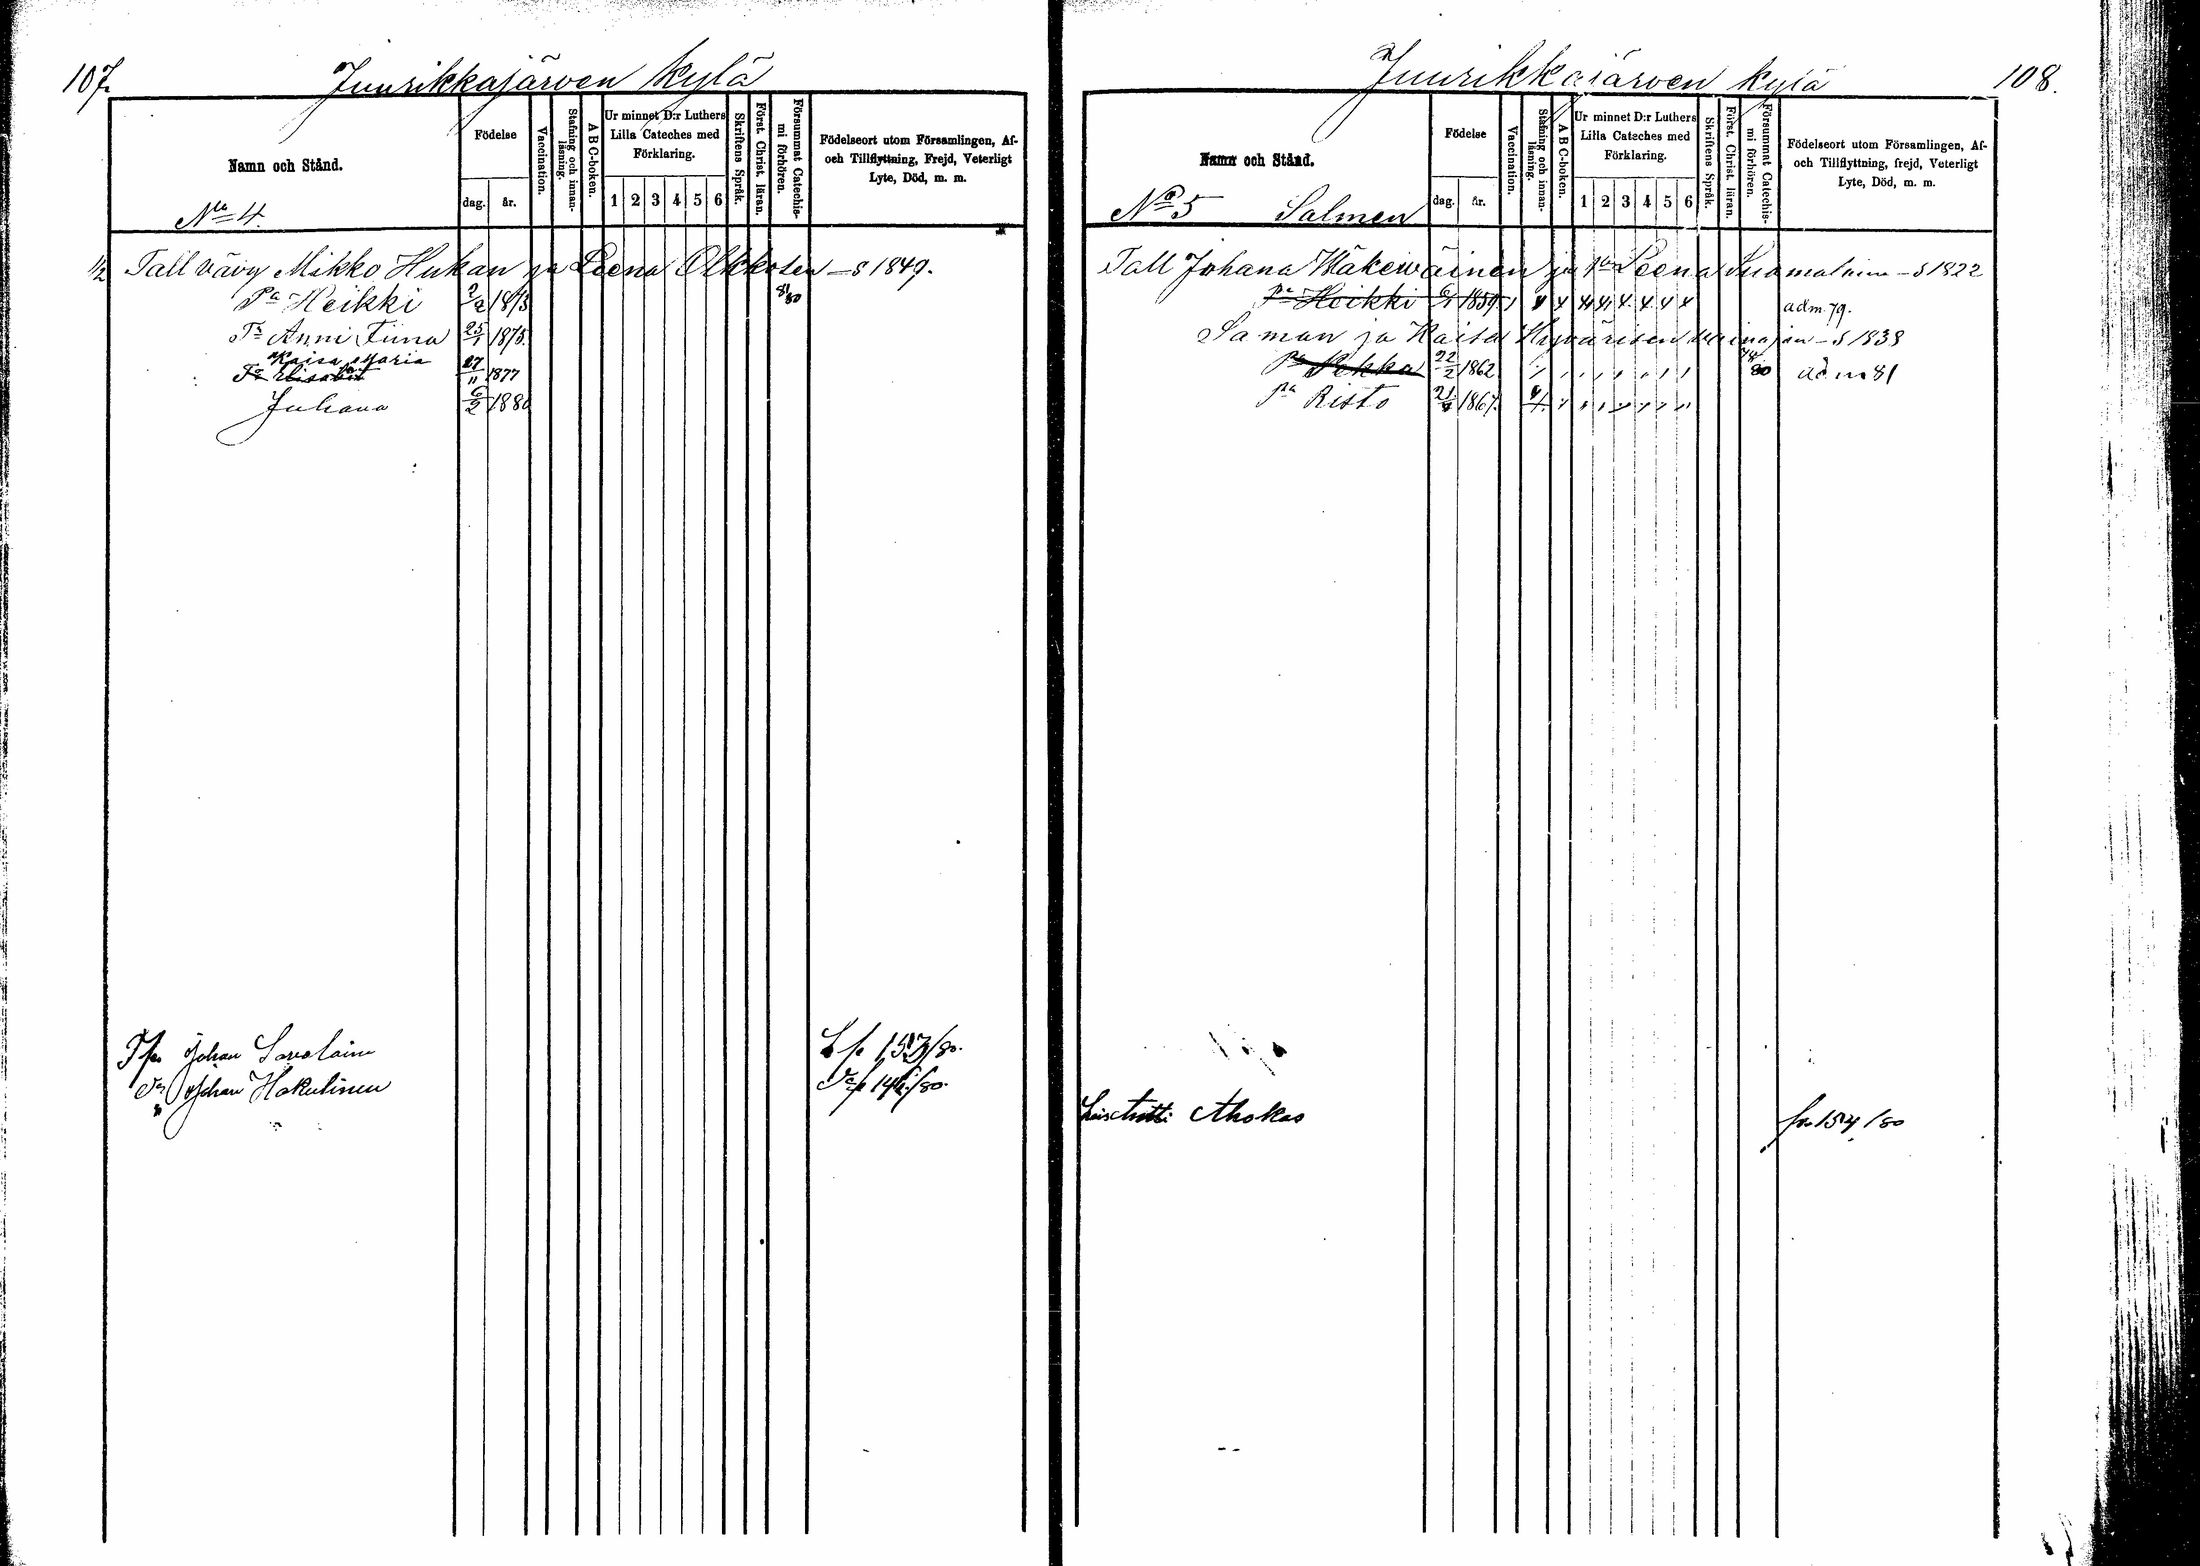 107.
Juurikkajärven kylä
Namn och Stånd.
No 4.
Födelse
dag.
år.
Vaccination.
Stafning och innanläsning.
A B C-boken.
Ur minnet D:r Luthers Lilla Cateches med Förklaring.
1 2 3 4 5 6
Skriftens Språk.
Först. Christ. läran.
Försummat Catechismi förhören.
Födelseort utom Församlingen, Af- och Tillflyttning, Frejd, Veterligt Lyte, Död, m. m.
1/2 Tall vävy Mikko Hukan ja Leena Olkkosen – s 1849.
Pa Heikki 2/2 1873 81/80
Tr Anni Tiina 25/1 1875.
Kaisa Maria
Tr Elisabet 27/11 1877
Juhana 6/2 1880
Johan Savolain 153/80.
Johan Hakulinen /80.
108.
Juurikkajärven kylä
Namn och Stånd.
No 5 Salmen
Födelse
dag.
år.
Vaccination.
Stafning och innanläsning.
A B C-boken.
Ur minnet D:r Luthers Lilla Cateches med Förklaring.
1 2 3 4 5 6
Skriftens Språk.
Först. Christ. läran.
Försummat Catechismi förhören.
Födelseort utom Församlingen, Af- och Tillflyttning, frejd, Veterligt Lyte, Död, m. m.
Tall Johana Wäkewäinen ja Leena Suomalainen – s 1822
Pa Heikki 1859. adm. 79.
Saman ja Kaisa Hyvärisen vainajan – s 1838
Pa Pekka 22/2 1862 adm 81
Pa Risto 21/4 1867.
Ahokas 154/80